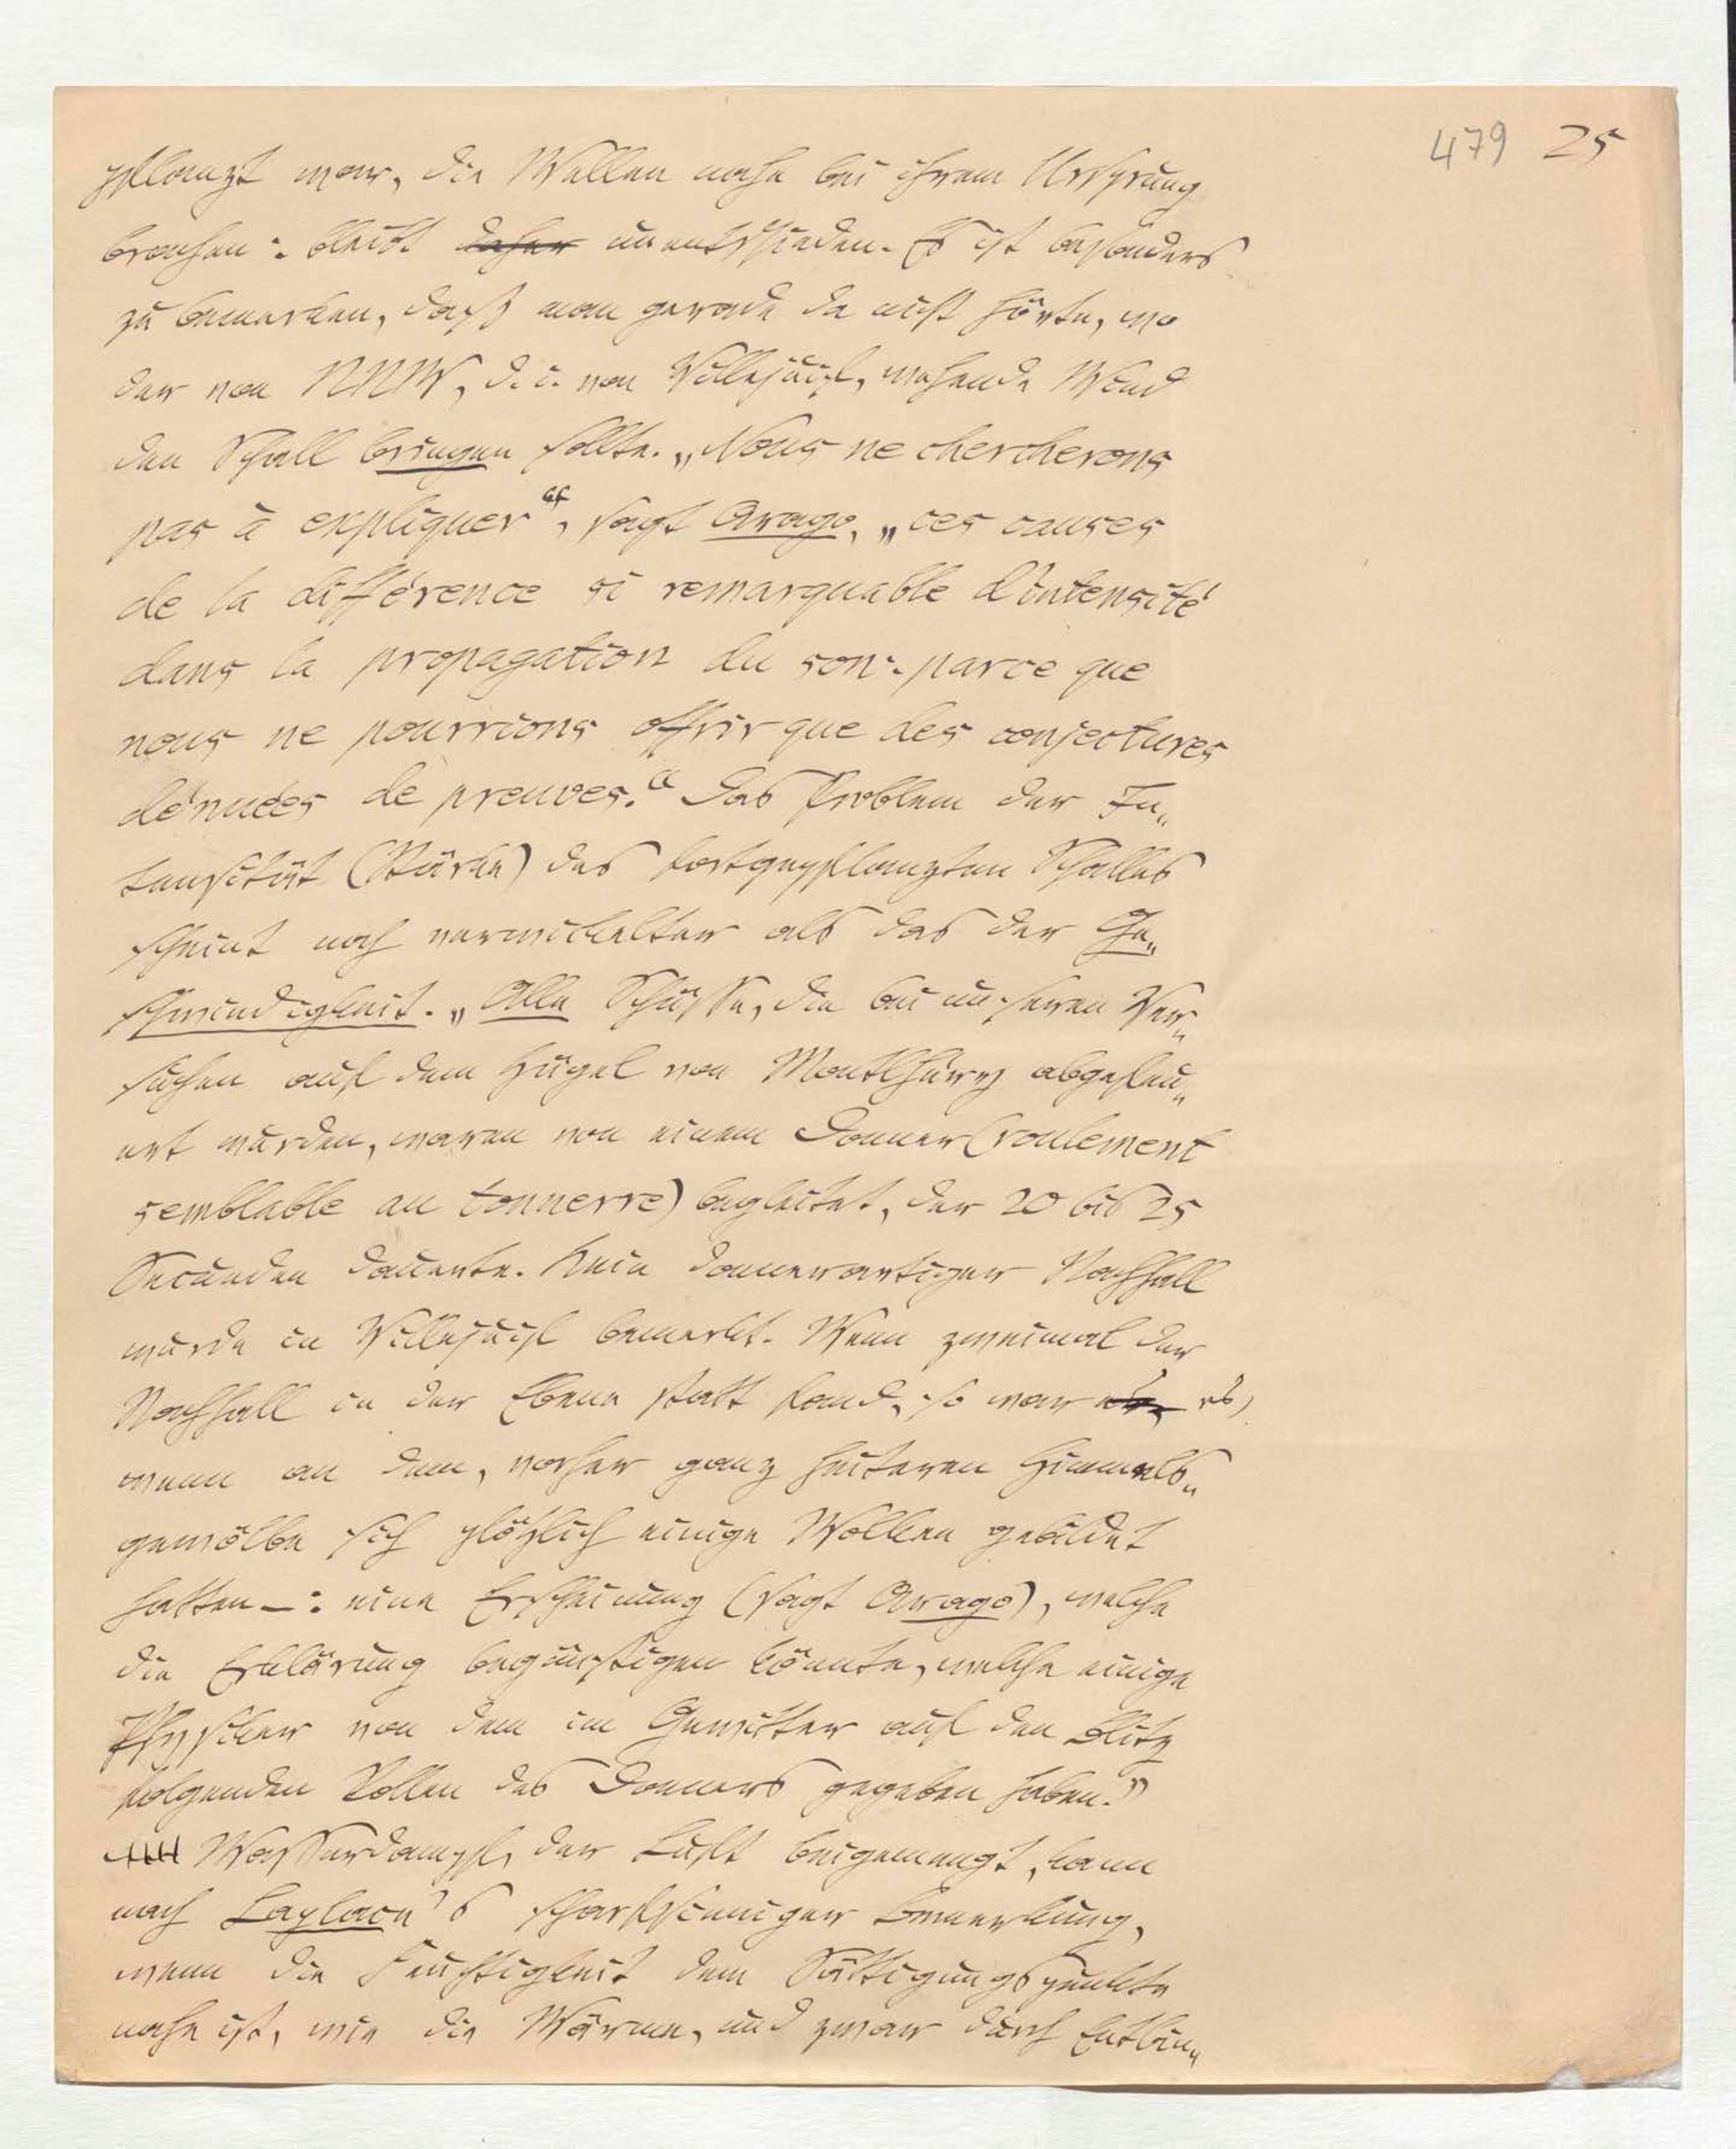 479 25
pflanzt war, die Wellen nahe bei ihrem Ursprung
brachen: bleibt daher unentschieden. Es ist besonders
zu bemerken, daß man gerade da nicht hörte, wo
der von NNW, d. i. von Villejuif, wehende Wind
den Schall bringen sollte. „Nous ne chercherons
pas à expliquer“, sagt Arago, „ces causes
de la différence si remarquable d'intensité
dans la propagation du son: parce que
nous ne pourrions offrir que des conjectures
dénuées de preuves.“ Das Problem der In„
tensität (Stärke) des fortgepflanzten Schalles
scheint noch verwickelter als das der Ge„
schwindigkeit. „Alle Schüsse, die bei unseren Ver„
suchen auf dem Hügel von Montlhéry abgefeu„
ert wurden, waren von einem Donner (roulement
semblable au tonnerre) begleitet, der 20 bis 25
Secunden dauerte. Kein donnerartiger Nachhall
wurde in Villejuif bemerkt. Wenn zweimal der
Nachhall in der Ebene statt fand, so war es,
wenn an dem, vorher ganz heiteren Himmels„
gewölbe sich plötzlich einige Wolken gebildet
hatten –: eine Erscheinung (sagt Arago), welche
die Erklärung begünstigen könnte, welche einige
Physiker von dem im Gewitter auf den Blitz
folgenden Rollen des Donners gegeben haben.“
Wasserdampf, der Luft beigemengt, kann
nach Laplace's scharfsinniger Bemerkung,
wenn die Feuchtigkeit dem Sättigungspunkte
nahe ist, wie die Wärme, und zwar durch Entbin„